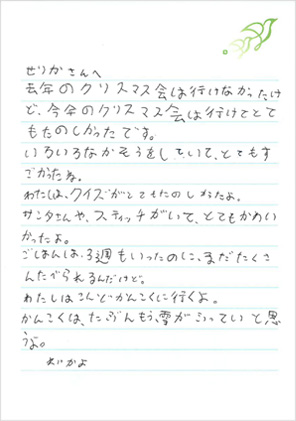 せりかさんへ
去年のクリスマス会は行けなかったけ
ど、今年のクリスマス会は行けてとて
もたのしかったです。
いろいろなかそうをしていて、とてもす
ごかったね。
わたしは、クイズがとてもたのしかったよ。
サンタさんや、スティッチがいて、とてもかわい
かったよ。
ごはんは、3週もいったのに、まだたくさ
んたべられるんだけど。
わたしはこんどかんこくに行くよ。
かんこくは、たぶんもう、雪がふっていると思
うよ。